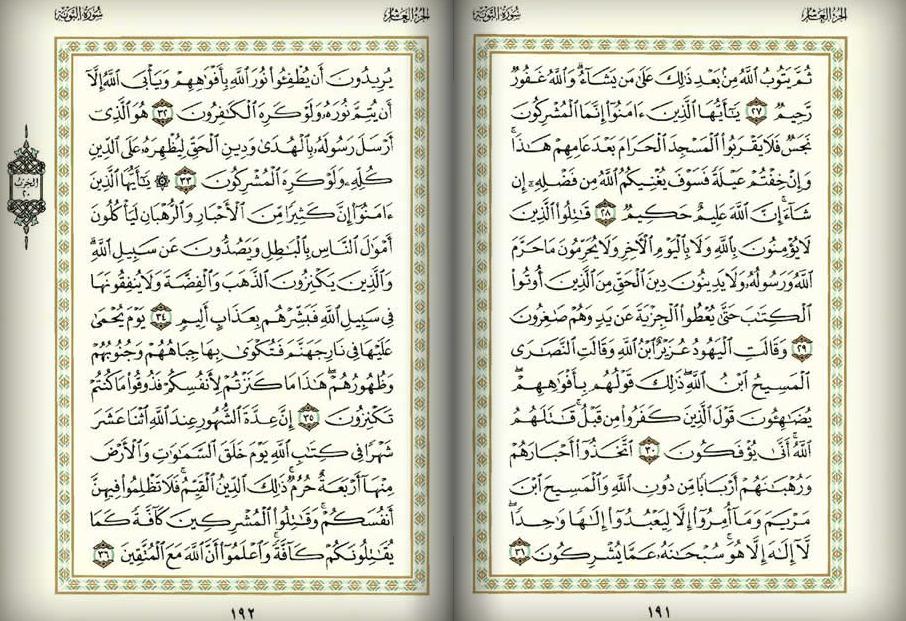 الجزء العاشر
سورة التوبة
ثُمَّ يَتُوبُ ٱللَّهُ مِنۢ بَعْدِ ذَٰلِكَ عَلَىٰ مَن يَشَآءُ ۗ وَٱللَّهُ غَفُورٌ
رَّحِيمٌ ٢٧ يَٰٓأَيُّهَا ٱلَّذِينَ ءَامَنُوٓا۟ إِنَّمَا ٱلْمُشْرِكُونَ
نَجَسٌ فَلَا يَقْرَبُوا۟ ٱلْمَسْجِدَ ٱلْحَرَامَ بَعْدَ عَامِهِمْ هَٰذَا ۚ
وَإِنْ خِفْتُمْ عَيْلَةً فَسَوْفَ يُغْنِيكُمُ ٱللَّهُ مِن فَضْلِهِۦٓ إِن
شَآءَ ۚ إِنَّ ٱللَّهَ عَلِيمٌ حَكِيمٌ ٢٨ قَٰتِلُوا۟ ٱلَّذِينَ
لَا يُؤْمِنُونَ بِٱللَّهِ وَلَا بِٱلْيَوْمِ ٱلْـَٔاخِرِ وَلَا يُحَرِّمُونَ مَا حَرَّمَ
ٱللَّهُ وَرَسُولُهُۥ وَلَا يَدِينُونَ دِينَ ٱلْحَقِّ مِنَ ٱلَّذِينَ أُوتُوا۟
ٱلْكِتَٰبَ حَتَّىٰ يُعْطُوا۟ ٱلْجِزْيَةَ عَن يَدٍ وَهُمْ صَٰغِرُونَ
٢٩ وَقَالَتِ ٱلْيَهُودُ عُزَيْرٌ ٱبْنُ ٱللَّهِ وَقَالَتِ ٱلنَّصَٰرَى
ٱلْمَسِيحُ ٱبْنُ ٱللَّهِ ۖ ذَٰلِكَ قَوْلُهُم بِأَفْوَٰهِهِمْ ۖ
يُضَٰهِـُٔونَ قَوْلَ ٱلَّذِينَ كَفَرُوا۟ مِن قَبْلُ ۚ قَٰتَلَهُمُ
ٱللَّهُ ۚ أَنَّىٰ يُؤْفَكُونَ ٣٠ ٱتَّخَذُوٓا۟ أَحْبَارَهُمْ
وَرُهْبَٰنَهُمْ أَرْبَابًا مِّن دُونِ ٱللَّهِ وَٱلْمَسِيحَ ٱبْنَ
مَرْيَمَ وَمَآ أُمِرُوٓا۟ إِلَّا لِيَعْبُدُوٓا۟ إِلَٰهًا وَٰحِدًا ۖ
لَّآ إِلَٰهَ إِلَّا هُوَ ۚ سُبْحَٰنَهُۥ عَمَّا يُشْرِكُونَ ٣١
١٩١
الجزء العاشر
سورة التوبة
يُرِيدُونَ أَن يُطْفِـُٔوا۟ نُورَ ٱللَّهِ بِأَفْوَٰهِهِمْ وَيَأْبَى ٱللَّهُ إِلَّآ
أَن يُتِمَّ نُورَهُۥ وَلَوْ كَرِهَ ٱلْكَٰفِرُونَ ٣٢ هُوَ ٱلَّذِىٓ
أَرْسَلَ رَسُولَهُۥ بِٱلْهُدَىٰ وَدِينِ ٱلْحَقِّ لِيُظْهِرَهُۥ عَلَى ٱلدِّينِ
كُلِّهِۦ وَلَوْ كَرِهَ ٱلْمُشْرِكُونَ ٣٣ ۞ يَٰٓأَيُّهَا ٱلَّذِينَ
ءَامَنُوٓا۟ إِنَّ كَثِيرًا مِّنَ ٱلْأَحْبَارِ وَٱلرُّهْبَانِ لَيَأْكُلُونَ
أَمْوَٰلَ ٱلنَّاسِ بِٱلْبَٰطِلِ وَيَصُدُّونَ عَن سَبِيلِ ٱللَّهِ ۗ
وَٱلَّذِينَ يَكْنِزُونَ ٱلذَّهَبَ وَٱلْفِضَّةَ وَلَا يُنفِقُونَهَا
فِى سَبِيلِ ٱللَّهِ فَبَشِّرْهُم بِعَذَابٍ أَلِيمٍ ٣٤ يَوْمَ يُحْمَىٰ
عَلَيْهَا فِى نَارِ جَهَنَّمَ فَتُكْوَىٰ بِهَا جِبَاهُهُمْ وَجُنُوبُهُمْ
وَظُهُورُهُمْ ۖ هَٰذَا مَا كَنَزْتُمْ لِأَنفُسِكُمْ فَذُوقُوا۟ مَا كُنتُمْ
تَكْنِزُونَ ٣٥ إِنَّ عِدَّةَ ٱلشُّهُورِ عِندَ ٱللَّهِ ٱثْنَا عَشَرَ
شَهْرًا فِى كِتَٰبِ ٱللَّهِ يَوْمَ خَلَقَ ٱلسَّمَٰوَٰتِ وَٱلْأَرْضَ
مِنْهَآ أَرْبَعَةٌ حُرُمٌ ۚ ذَٰلِكَ ٱلدِّينُ ٱلْقَيِّمُ ۚ فَلَا تَظْلِمُوا۟ فِيهِنَّ
أَنفُسَكُمْ ۚ وَقَٰتِلُوا۟ ٱلْمُشْرِكِينَ كَآفَّةً كَمَا
يُقَٰتِلُونَكُمْ كَآفَّةً ۚ وَٱعْلَمُوٓا۟ أَنَّ ٱللَّهَ مَعَ ٱلْمُتَّقِينَ ٣٦
١٩٢
الحزب
٢٠